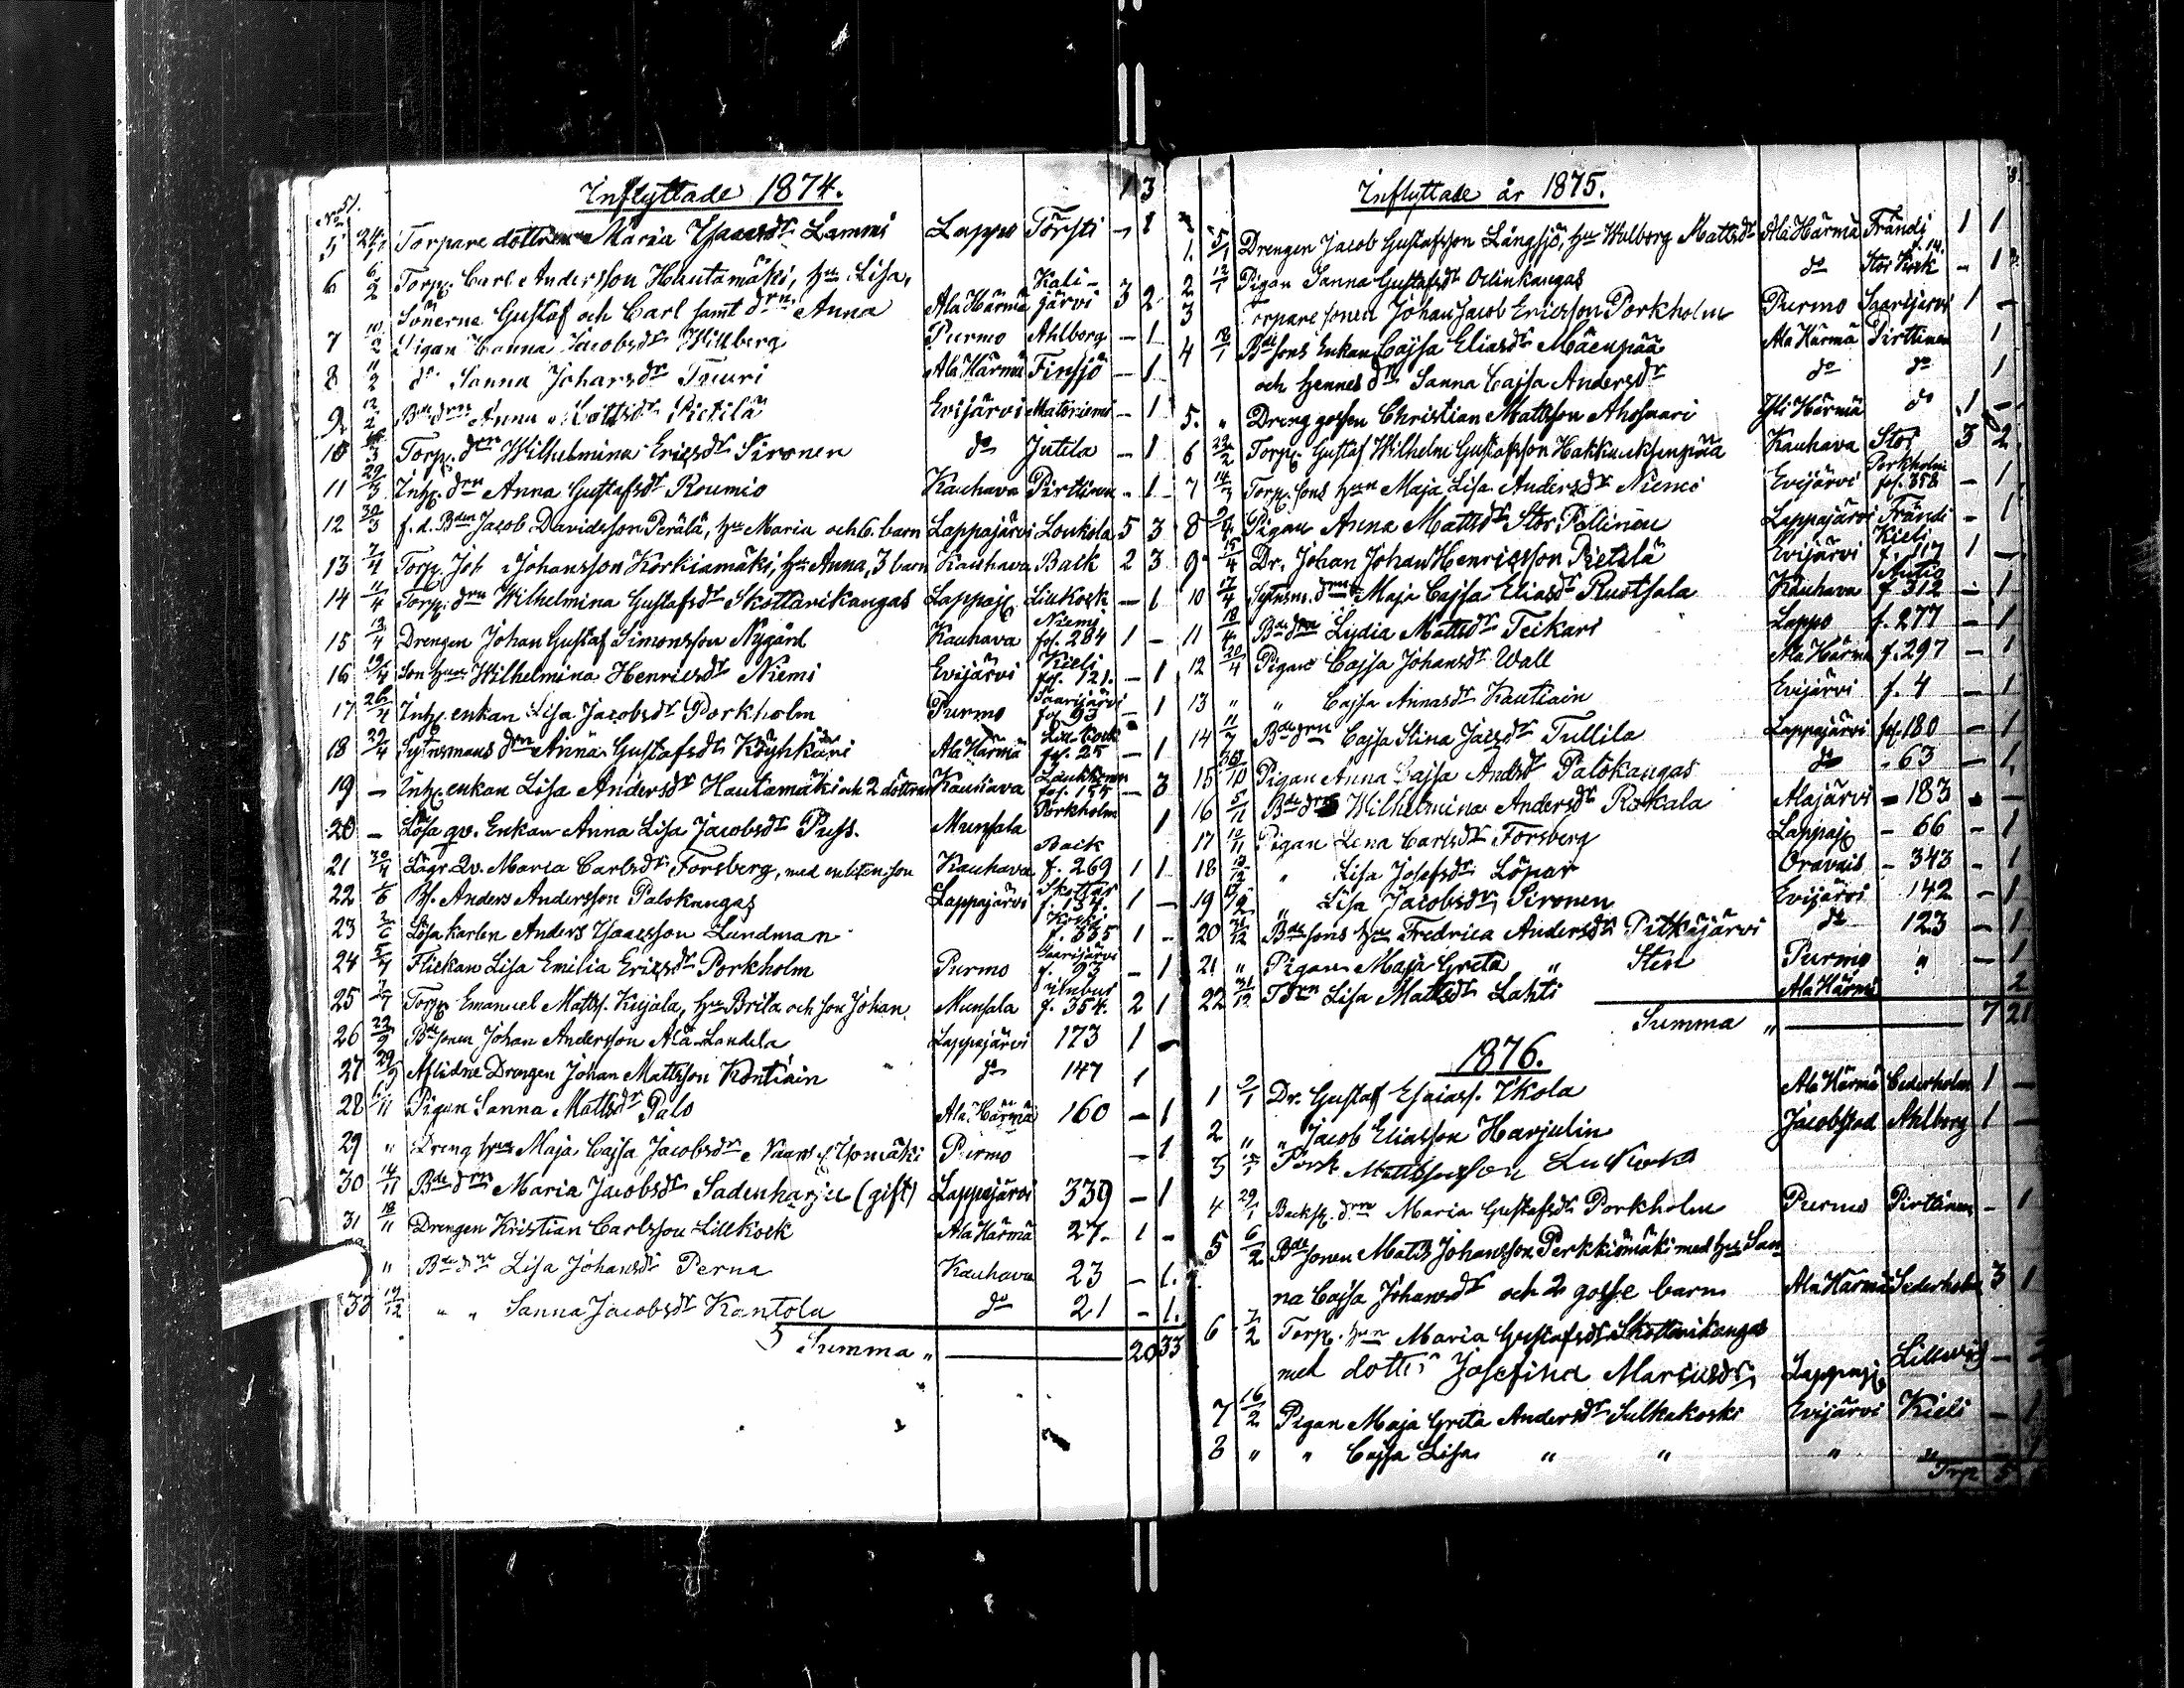 Inflyttade 1874. 1 3
No
5 24/1 Torpare dottren Maria Isaacsdr Lammi Lappo Törsti - 1
6 6/2 Torp. Carl Andersson Hautamäki, hu Lisa, Kali-
Sönerna Gustaf och Carl samt drn Anna Ala Härmä järvi 3 2
7 10/2 Pigan Sanna Jacobsdr Willberg Purmo Ahlborg - 1
8 11/2 do Sanna Johansdr Tuuri Ala Härmä Finsjö - 1
9 12/2 Bde drn Anna Mattsdr Pietilä Evijärvi Matoniemi - 1
10 Torp. drn Wilhelmina Ericsdr Sironen do Jutila - 1
11 29/3 Inh. drn Anna Gustafsdr Roumio Kauhava Pirttinen - 1
12 30/3 f.d. Bden Jacob Davidsson Perälä, hu Maria och 6 barn Lappajärvi Loukola 5 3
13 7/4 Torp. Joh Johansson Korkiamäki, hu Anna, 3 barn Kauhava Back 2 3
14 11/4 Torp. drn Wilhelmina Gustafsdr Skottarikangas Lappaj. Liukock - 1
15 13/4 Drengen Johan Gustaf Simonsson Nygård Kauhava Niemi fol. 284 1 -
16 19/4 Son hun Wilhelmina Henricsdr Niemi Evijärvi Kieli fol. 121. - 1
17 26/4 Inh. enkan Lisa Jacobsdr Porkholm Purmo Saarijärvi fol 93 - 1
18 29/4 Sytnsmans drn Anna Gustafsdr Köyhkäri Ala Härmä Lill Cock fol. 25 - 1
19 - Inh. enkan Lisa Andersdr Hautamäki och 2 döttrar Kauhava Laukkonen fol. 155 - 3
20 - Lösa qv. Enkan Anna Lisa Jacobsdr Puss. Munsala Porkholm 1
21 30/4 Lägr Qv. Maria Carlsdr Forsberg, med en liten son Kauhava Back f. 269 1 1
22 Bf. Anders Andersson Palokangas Lappajärvi Skottar f. 134. 1 -
23 Lösa karlen Anders Isacsson Lundman Koski f. 335 1 -
24 5/7 Flickan Lisa Emilia Ericsdr Porkholm Purmo Saarijärvi f. 93 - 1
25 7/7 Torp. Emanuel Mattss. Kujala, hu Brita och son Johan Munsala f. 354. 2 1
26 22/9 Bdesonen Johan Andersson Ala-Landela Lappajärvi 173 1 -
27 29/9 Aflidne Drengen Johan Mattsson Kontiain do 147 1
28 6/11 Pigan Sanna Mattsdr Palo Ala Härmä 160 - 1
29 " Dreng hun Maja Cajsa Jacobsdr Purmo - 1
30 14/11 Bde drn Maria Jacobsdr Sadenharju (gift) Lappajärvi 339 - 1
31 18/11 Drengen Kristian Carlsson Lillkock Ala Härmä 27 - 1 -
" Bde dr Lisa Johansdr Perna Kauhava 23 - 1.
33 19/12 " " Sanna Jacobsdr Kantola do 21 - 1.
Summa " 20 33
Inflyttade år 1875.
1. 5/1 Drengen Jacob Gustafsson Långsjö, hu Walborg Mattsdr Ala Härmä Frändi 1 1
2 12/1 Pigan Sanna Gustafsdr Orlinkangas do Stor Kock - 1
3 Torpare sonen Johan Jacob Ericsson Porkholm Purmo Saarijärvi 1 -
4 18/1 Bde sons Enkan Cajsa Eliasdr Mäenpää Ala Härmä Pirttinen 1
och hennes dr Sanna Cajsa Andersdr do do 1
5. " Dreng gossen Christian Mattsson Ahosaari Yli Härmä do 1 -
6 22/2 Torp. Gustaf Wilhelm Gustafsson Kauhava Stor 3 2
7 14/3 Torp. sons hun Maja Lisa Andersdr Niemi Evijärvi Porkholm fol. 358 - 1
8 9/4 Pigan Anna Mattsdr Stor Pellinen Lappajärvi Frändi - 1
9 15/4 Dr. Johan Johan Henricsson Pietilä Evijärvi Kieli f. 117 1 -
10 17/4 Sytnsm. drn Maja Cajsa Eliasdr Ruotsala Kauhava Antio f. 312 - 1
11 18/4 Bde drn Lydia Mattsdr Teikari Lappo f. 277 - 1
12 20/4 Pigan Cajsa Johansdr Wall Ala Härmä f. 297 - 1
13 " " Cajsa Annasdr Kautiain Evijärvi f. 4 - 1
14 11/7 Bde drn Cajsa Stina Jacsdr Tullila Lappajärvi fol. 180 - 1
15 30/10 Pigan Anna Cajsa Andsdr Palokangas do - 63 - 1
16 5/11 Bde drn Wilhelmina Andersdr Rokala Alajärvi - 183 - -
17 10/11 Pigan Lena Carlsdr Forsberg Lappaj. - 66 - 1
18 " Lisa Josefsdr Löpar Oravais - 343 - 1
19 " Lisa Jacobsdr Sironen Evijärvi 142 - 1
20 Bde sons hu Fredrica Andersdr Pitkäjärvi do 123 - 1
21 " Pigan Maja Greta " Sten Purmo " - 1
22 31/12 Tdrn Lisa Mattsdr Lahti Ala Härmä 2
Summa " 7 21
1876.
1 Dr. Gustaf Esaiass. Ikola Ala Härmä Cederholm 1 -
2 " " Jacob Eliasson Harjulin Jacobstad Ahlborg 1 -
3 Mattsson
4 29/1 Backst. drn Maria Gustafsdr Porkholm Purmo Pirttinen - 1
5 6/2 Bde sonen Matts Johansson Perkkiömäki med hu San
na Cajsa Johansdr och 2 gosse barn Ala Härmä Sederholm 3 1
6 7/2 Torp. hun Maria Gustafsdr Skottarikangas
med dottr Josefina Mariasdr Lappaj.
7 16/2 Pigan Maja Greta Andersdr Sulkakoski Evijärvi Kieli - 1
8 " " Cajsa Lisa " " " " - 1